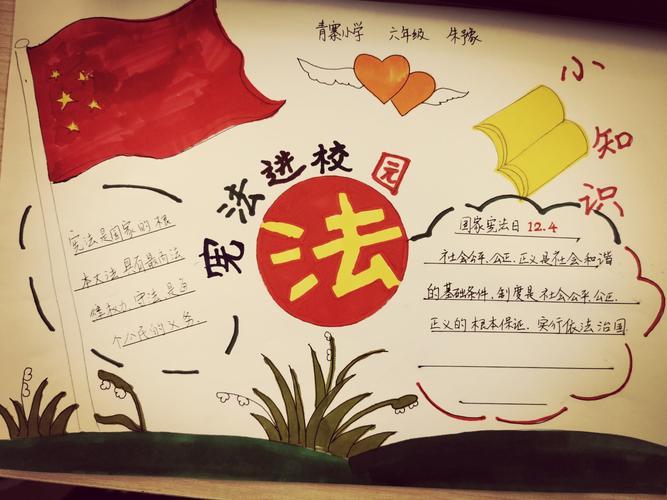 青寨小学 六年级 朱豫
小知识
宪法进校园
法
宪法是国家的根
本大法,具有最高法
律权力,守法是每
个公民的义务.
国家宪法日 12.4
社会公平、公正、正义是社会和谐
的基础条件,制度是社会公平、公正、
正义的根本保证,实行依法治国